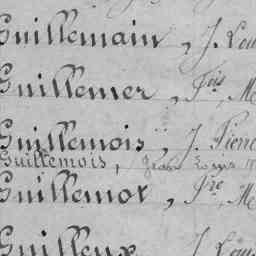 Guillemain, J. Lou
Guillemer, Fois, M
Guillemois, J. Pierr
Guillemois, Jean
Guillemot, Pre, M
Guilleux, J. Lou